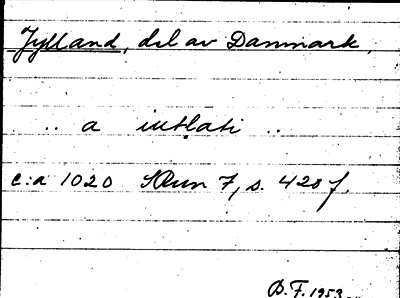 Jylland, del av Danmark.
.. a iutlati ..
c:a 1020 SRun 7, s. 428 f.
B.F. 1953